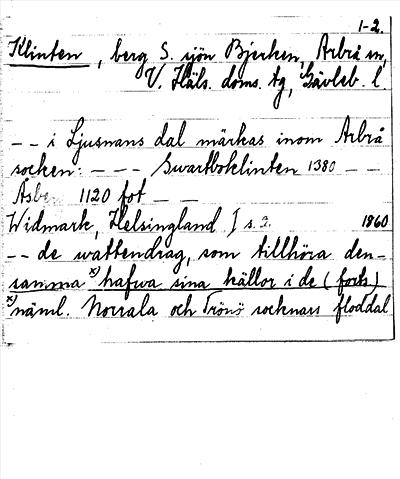 1-2.
Klinten, berg S. sjön Bjerken, Arbrå sn,
V. Häls. doms. tg, Gävleb. l.
-- i Ljusnans dal märkas inom Arbrå
socken: --- Swartboklinten 1380 --
Åsberg 1120 fot --
Widmark, Helsingland I s. 2. 1860
-- de wattendrag, som tillhöra den-
samma x) hafwa sina källor i de (forts)
x) näml. Norrala och Trönö socknars floddal